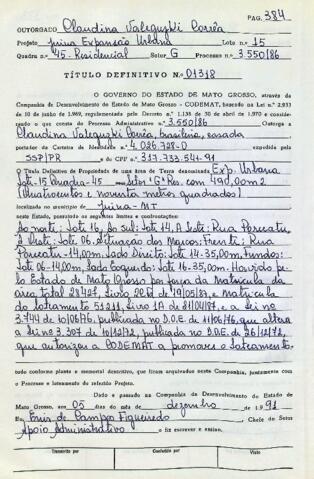 PAG. 384
OUTORGADO Claudina Valeguzki Corrêa
Projeto Juina Expansão Urbana Lote n.º 15
Quadra n.º 45 - Residencial Setor G Processo n.º 3.550/86
TÍTULO DEFINITIVO N.º 01318
O GOVERNO DO ESTADO DE MATO GROSSO, através da
Companhia de Desenvolvimento do Estado de Mato Grosso - CODEMAT, baseado na Lei n.º 2.933
de 10 de junho de 1969, regulamentada pelo Decreto n.º 1.138 de 30 de abril de 1970 e consideran-
do o que consta do Processo Administrativo n.º 3.550/86 Outorga a
Claudina Valeguzki Corrêa, brasileira, casada
portador da Carteira de Identidade n.º 4.026.728-0 expedida pela
SSP/PR e do CPF n.º 317.733.541-91
O Título Definitivo de Propriedade de uma área de Terra denominada Exp. Urbana
Lote-15 Quadra-45 Setor "G" Res. com 490,00m2
(Quatrocentos e noventa metros quadrados)
localizada no município de Juina-MT
neste Estado, possuindo os seguintes limites e confrontações:
Ao norte: Lote 16, Ao Sul: Lote 14, A Leste: Rua Porecatu,
A Oeste: Lote 06. Situação dos Marcos: Frente: Rua
Porecatu-14,00m. Lado Direito: Lote 14-35,00m, Fundos:
Lote 06-14,00m, Lado Esquerdo: Lote 16-35,00m. Havido pe-
lo Estado de Mato Grosso por força da Matrícula da
área total 28427, Livro de 19/05/87, e Matrícula
do Loteamento 31211, Livro 1A de 31/04/87, e a Lei nº
3.744 de 10/06/76, publicado no D.O.E de 11/06/76, que altera
a Lei nº 3.307 de 10/12/72, publicado no D.O.E. de 26/12/72,
que autorizou a CODEMAT a promover o loteamento.
tudo conforme planta e memorial descritivo, que ficam arquivados nesta Companhia, juntamente com
o Processo e loteamento do referido Projeto.
Dado e passado na Companhia de Desenvolvimento do Estado de
Mato Grosso, aos 05 dias do mês de dezembro de 1991
Eu, Enir de Campos Figueiredo Chefe do Setor
Apoio Administrativo o fiz escrever e assino.
Transcrito por
Conferido por
Visto